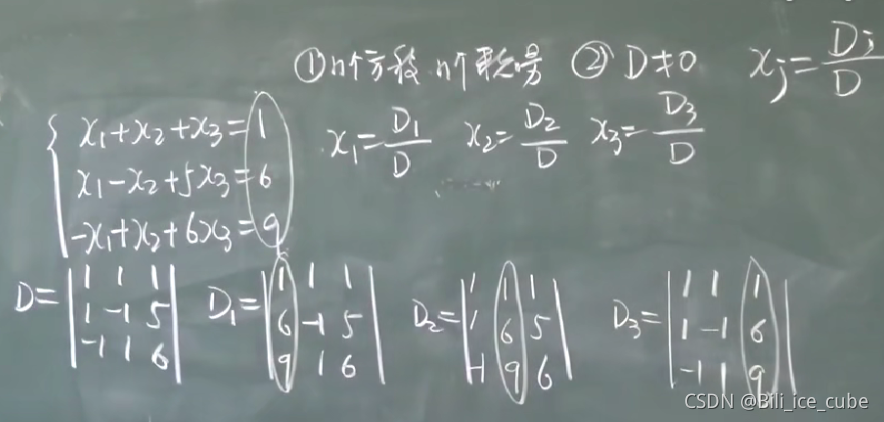 ①n个方程 n个未知量 ② D≠0 xj=Dj/D
x1+x2+x3=1
x1-x2+5x3=6
-x1+x2+6x3=9
x1=D1/D x2=D2/D x3=D3/D
D=|1 1 1|
|1 -1 5|
|-1 1 6|
D1=|1 1 1|
|6 -1 5|
|9 1 6|
D2=|1 1 1|
|1 6 5|
|-1 9 6|
D3=|1 1 1|
|1 -1 6|
|-1 1 9|
CSDN @Bili_ice_cube